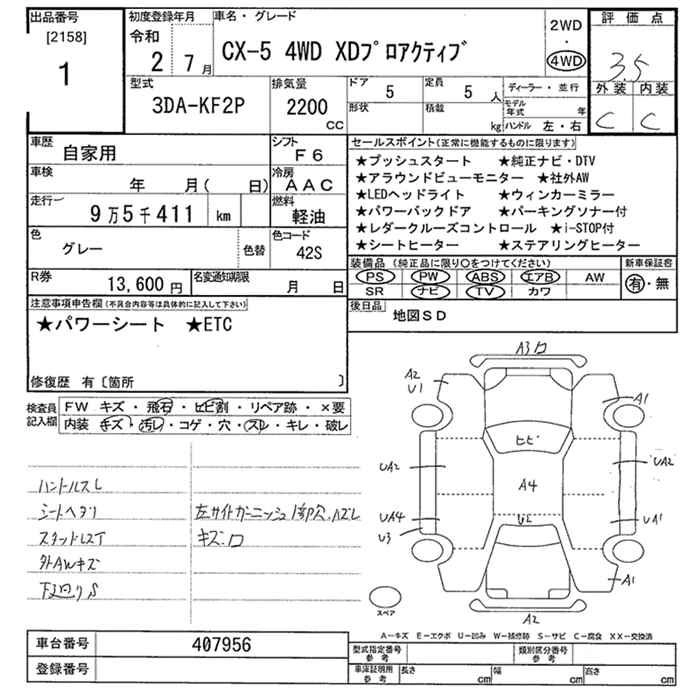 出品番号
[2158]
1
初度登録年月
令和
2 7月
車名・グレード
CX-5 4WD XDプロアクティブ
2WD
・
4WD
評価点
3.5
外装 内装
C C
型式
3DA-KF2P
排気量
2200
CC
ドア 5
定員 5人
形状
積載 kg
ディーラー・並行
モデル年式 年
ハンドル 左・右
車歴
自家用
シフト
F6
車検
年 月( 日)
冷房
AAC
走行
9万5千411 km
燃料
軽油
色
グレー
色替
色コード
42S
R券
13,600円
名変通知期限
月 日
セールスポイント(正常に機能するものに限ります)
★プッシュスタート ★純正ナビ・DTV
★アラウンドビューモニター ★社外AW
★LEDヘッドライト ★ウィンカーミラー
★パワーバックドア ★パーキングソナー付
★レダークルーズコントロール ★i-STOP付
★シートヒーター ★ステアリングヒーター
装備品(純正品に限り○をつけてください)
新車保証書
PS PW ABS エアB AW
SR ナビ TV カワ
有・無
後日品
地図SD
注意事項申告欄(不具合内容等は具体的に記入して下さい)
★パワーシート ★ETC
修復歴 有〔箇所 〕
検査員記入欄
FW キズ・飛石・ヒビ割・リペア跡・×要
内装 キズ・汚レ・コゲ・穴・スレ・キレ・破レ
ハンドルスレ
シートヘタリ
スタッドレスT
外AWキズ
下廻りS
左サイドガーニッシュ1部欠,ハズレ
キズ口
A3口
A2
U1
A1
ヒビ
UA2
UA2
A4
UA4
U3
UA1
A1
A2
スペア
A-キズ E-エクボ U-凹み W-補修跡 S-サビ C-腐食 XX-交換済
車台番号
407956
登録番号
型式指定番号
参考
類別区分番号
参考
車庫証明用
参考
長さ cm
幅 cm
高さ cm